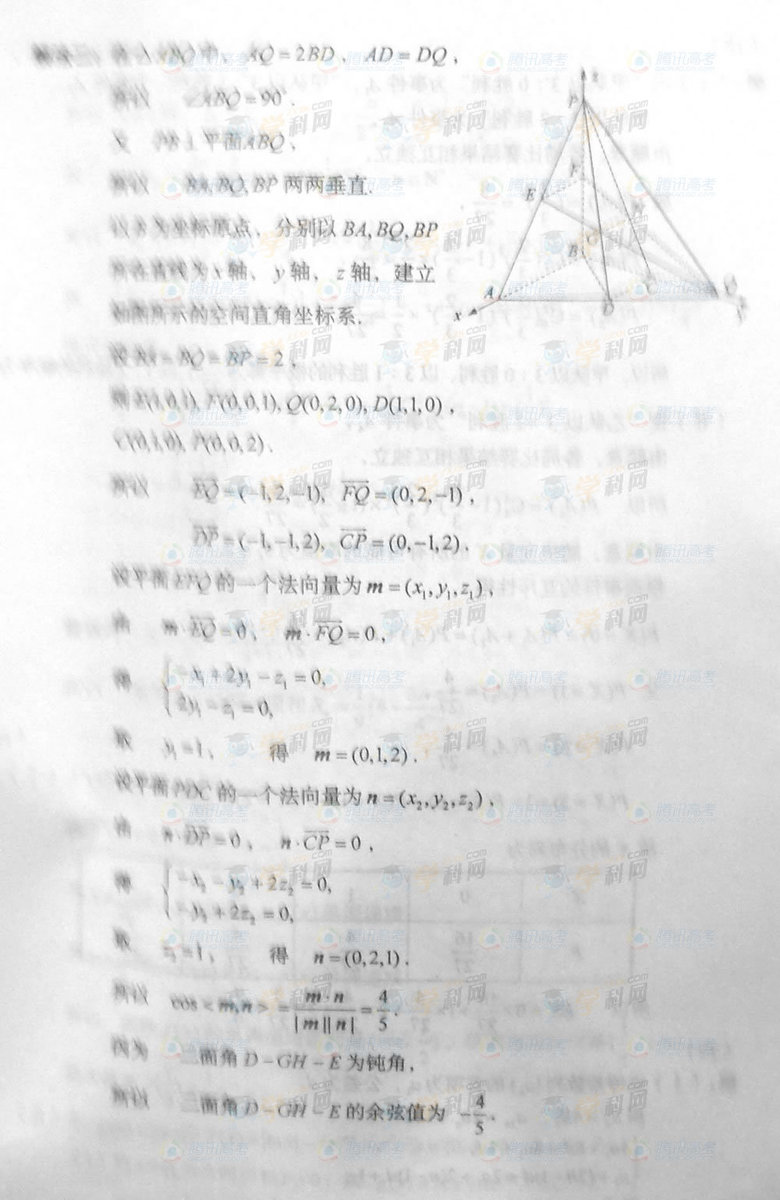 △ABQ中，AQ=2BD，AD=DQ，
所以 ∠ABQ=90°.
又 PB⊥平面ABQ，
所以 BA,BQ,BP两两垂直.
以B为坐标原点，分别以BA,BQ,BP
所在直线为x轴、y轴、z轴，建立
如图所示的空间直角坐标系.
设BA=BQ=BP=2，
则E(1,0,1), F(0,0,1), Q(0,2,0), D(1,1,0)，
C(0,1,0), P(0,0,2).
所以 EQ=(-1,2,-1), FQ=(0,2,-1)，
DP=(-1,-1,2), CP=(0,-1,2).
设平面EFQ的一个法向量为m=(x₁,y₁,z₁)，
由 m·EQ=0，m·FQ=0，
得 -x₁+2y₁-z₁=0,
2y₁-z₁=0,
取 y₁=1，得 m=(0,1,2).
设平面PDC的一个法向量为n=(x₂,y₂,z₂)，
由 n·DP=0，n·CP=0，
得 -x₂-y₂+2z₂=0,
-y₂+2z₂=0,
取 z₂=1，得 n=(0,2,1).
所以 cos<m,n>=m·n/|m||n|=4/5.
因为 二面角D-GH-E为钝角，
所以 二面角D-GH-E的余弦值为 -4/5.
z
P
F
E
H
B
G
A
C
Q
D
x
y
学科网
腾讯高考